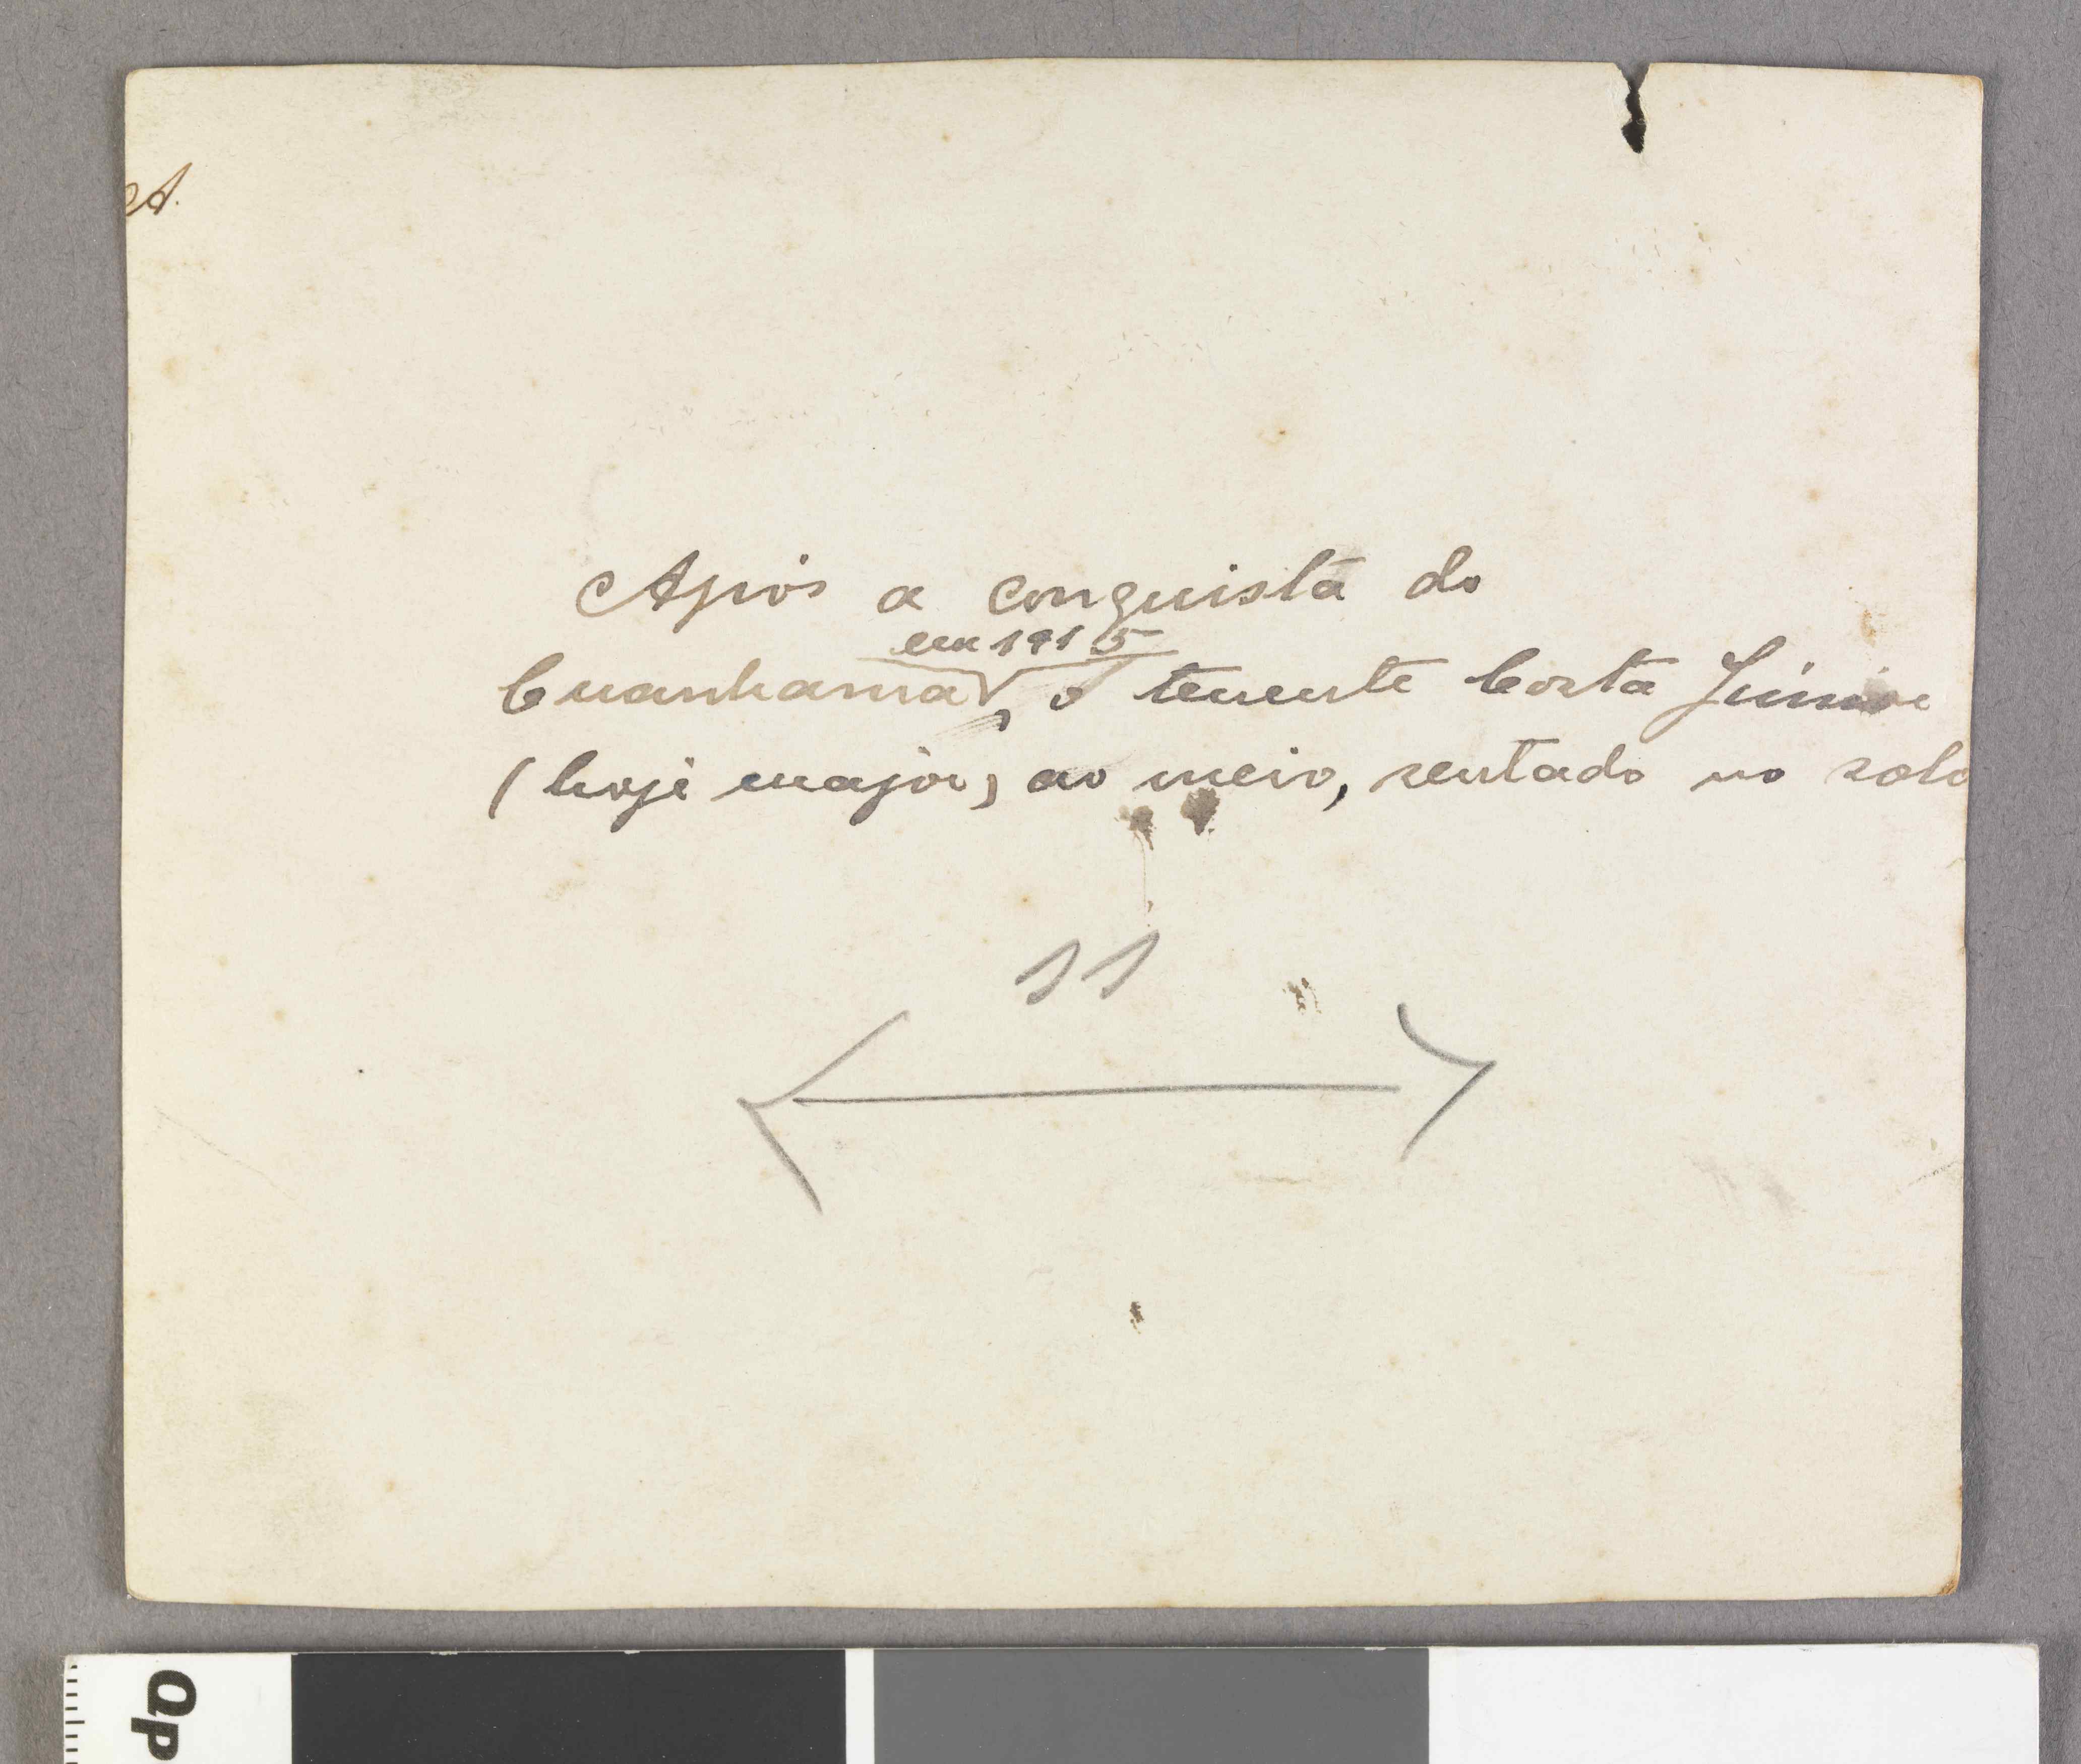 A.
Após a conquista do
em 1915
Cuanhama, o tenente Costa Júnior
(hoje major) ao meio, sentado no solo
11
QP